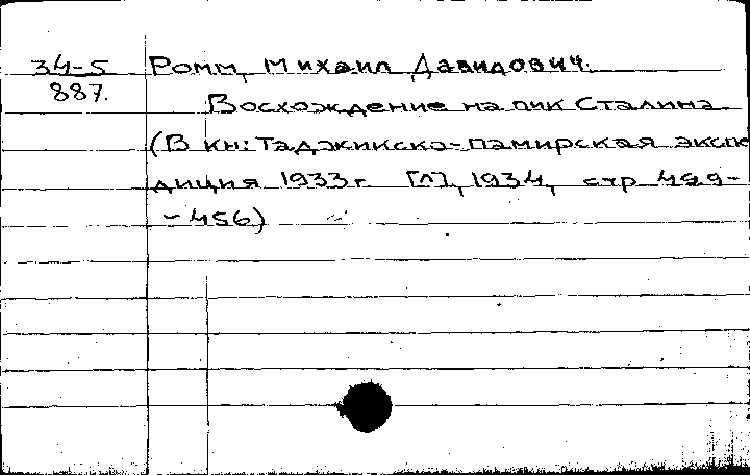 34-5
887.
Ромм, Михаил Давидович.
Восхождение на пик Сталина.
(В кн: Таджикско-памирская экспе
диция 1933 г. [Л], 1934, стр 499-
-456)